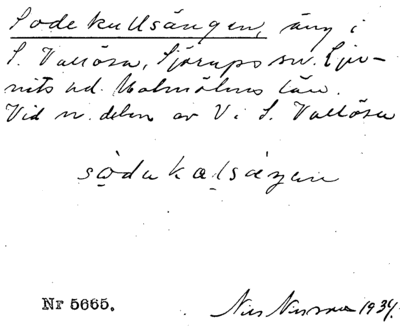 Sodekullsängen, äng i
S. Vallösa, Sjörups sn. Lju-
nits hd. Malmöhus län.
Vid n. delen av V i S. Vallösa
sòdekalsäŋen
Nr 5665. Nils Nilsson 1934.